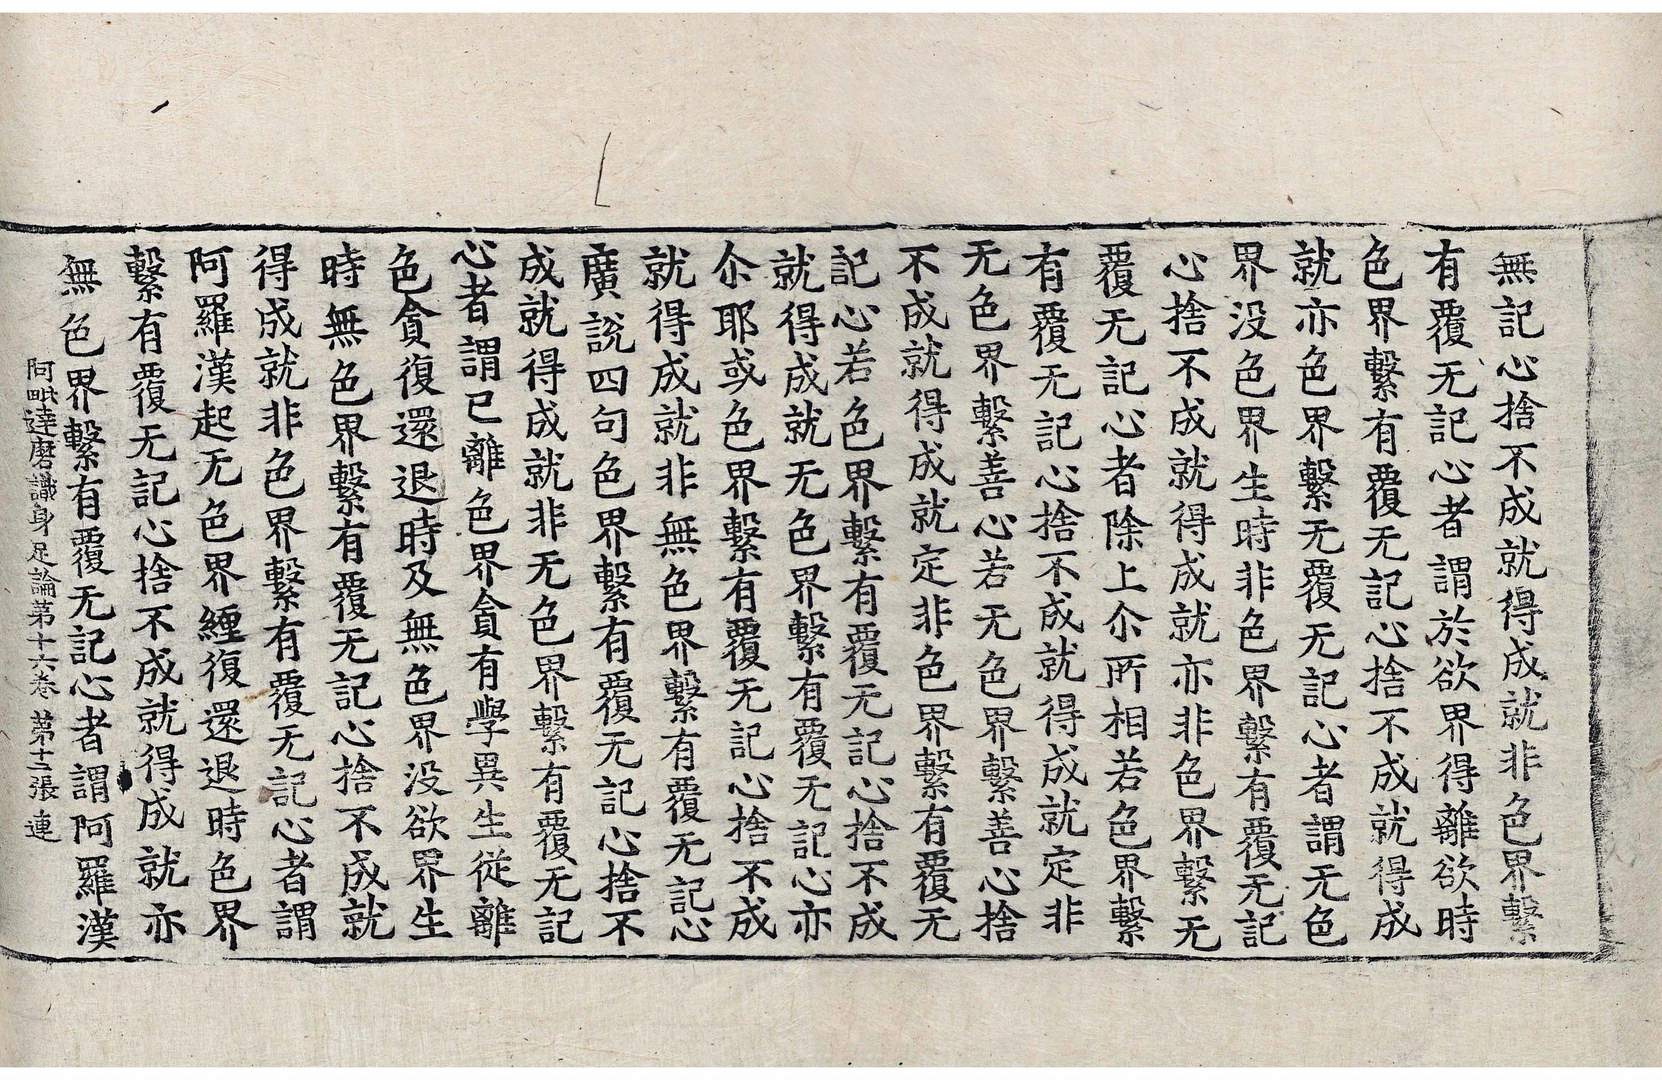 無記心捨不成就得成就非色界繫
有覆无記心者謂於欲界得離欲時
色界繫有覆无記心捨不成就得成
就亦色界繫无覆无記心者謂无色
界没色界生時非色界繫有覆无記
心捨不成就得成就亦非色界繫无
覆无記心者除上尒所相若色界繫
有覆无記心捨不成就得成就定非
无色界繫善心若无色界繫善心捨
不成就得成就定非色界繫有覆无
記心若色界繫有覆无記心捨不成
就得成就无色界繫有覆无記心亦
尒耶或色界繫有覆无記心捨不成
就得成就非無色界繫有覆无記心
廣說四句色界繫有覆无記心捨不
成就得成就非无色界繫有覆无記
心者謂已離色界貪有學異生從離
色貪復還退時及無色界没欲界生
時無色界繫有覆无記心捨不成就
得成就非色界繫有覆无記心者謂
阿羅漢起无色界纏復還退時色界
繫有覆无記心捨不成就得成就亦
無色界繫有覆无記心者謂阿羅漢
阿毗達磨識身足論第十六卷 第十二張 連